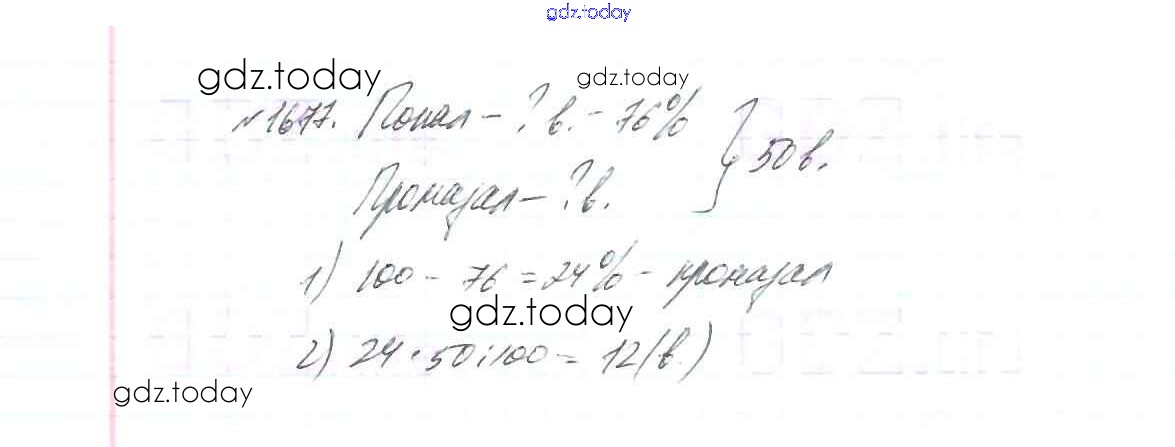 gdz.today
gdz.today gdz.today
№1677. Попал - ? в. - 76%
Промазал - ? в.
} 50 в.
1) 100 - 76 = 24% - промазал
gdz.today
2) 24 · 50 : 100 = 12 (в.)
gdz.today